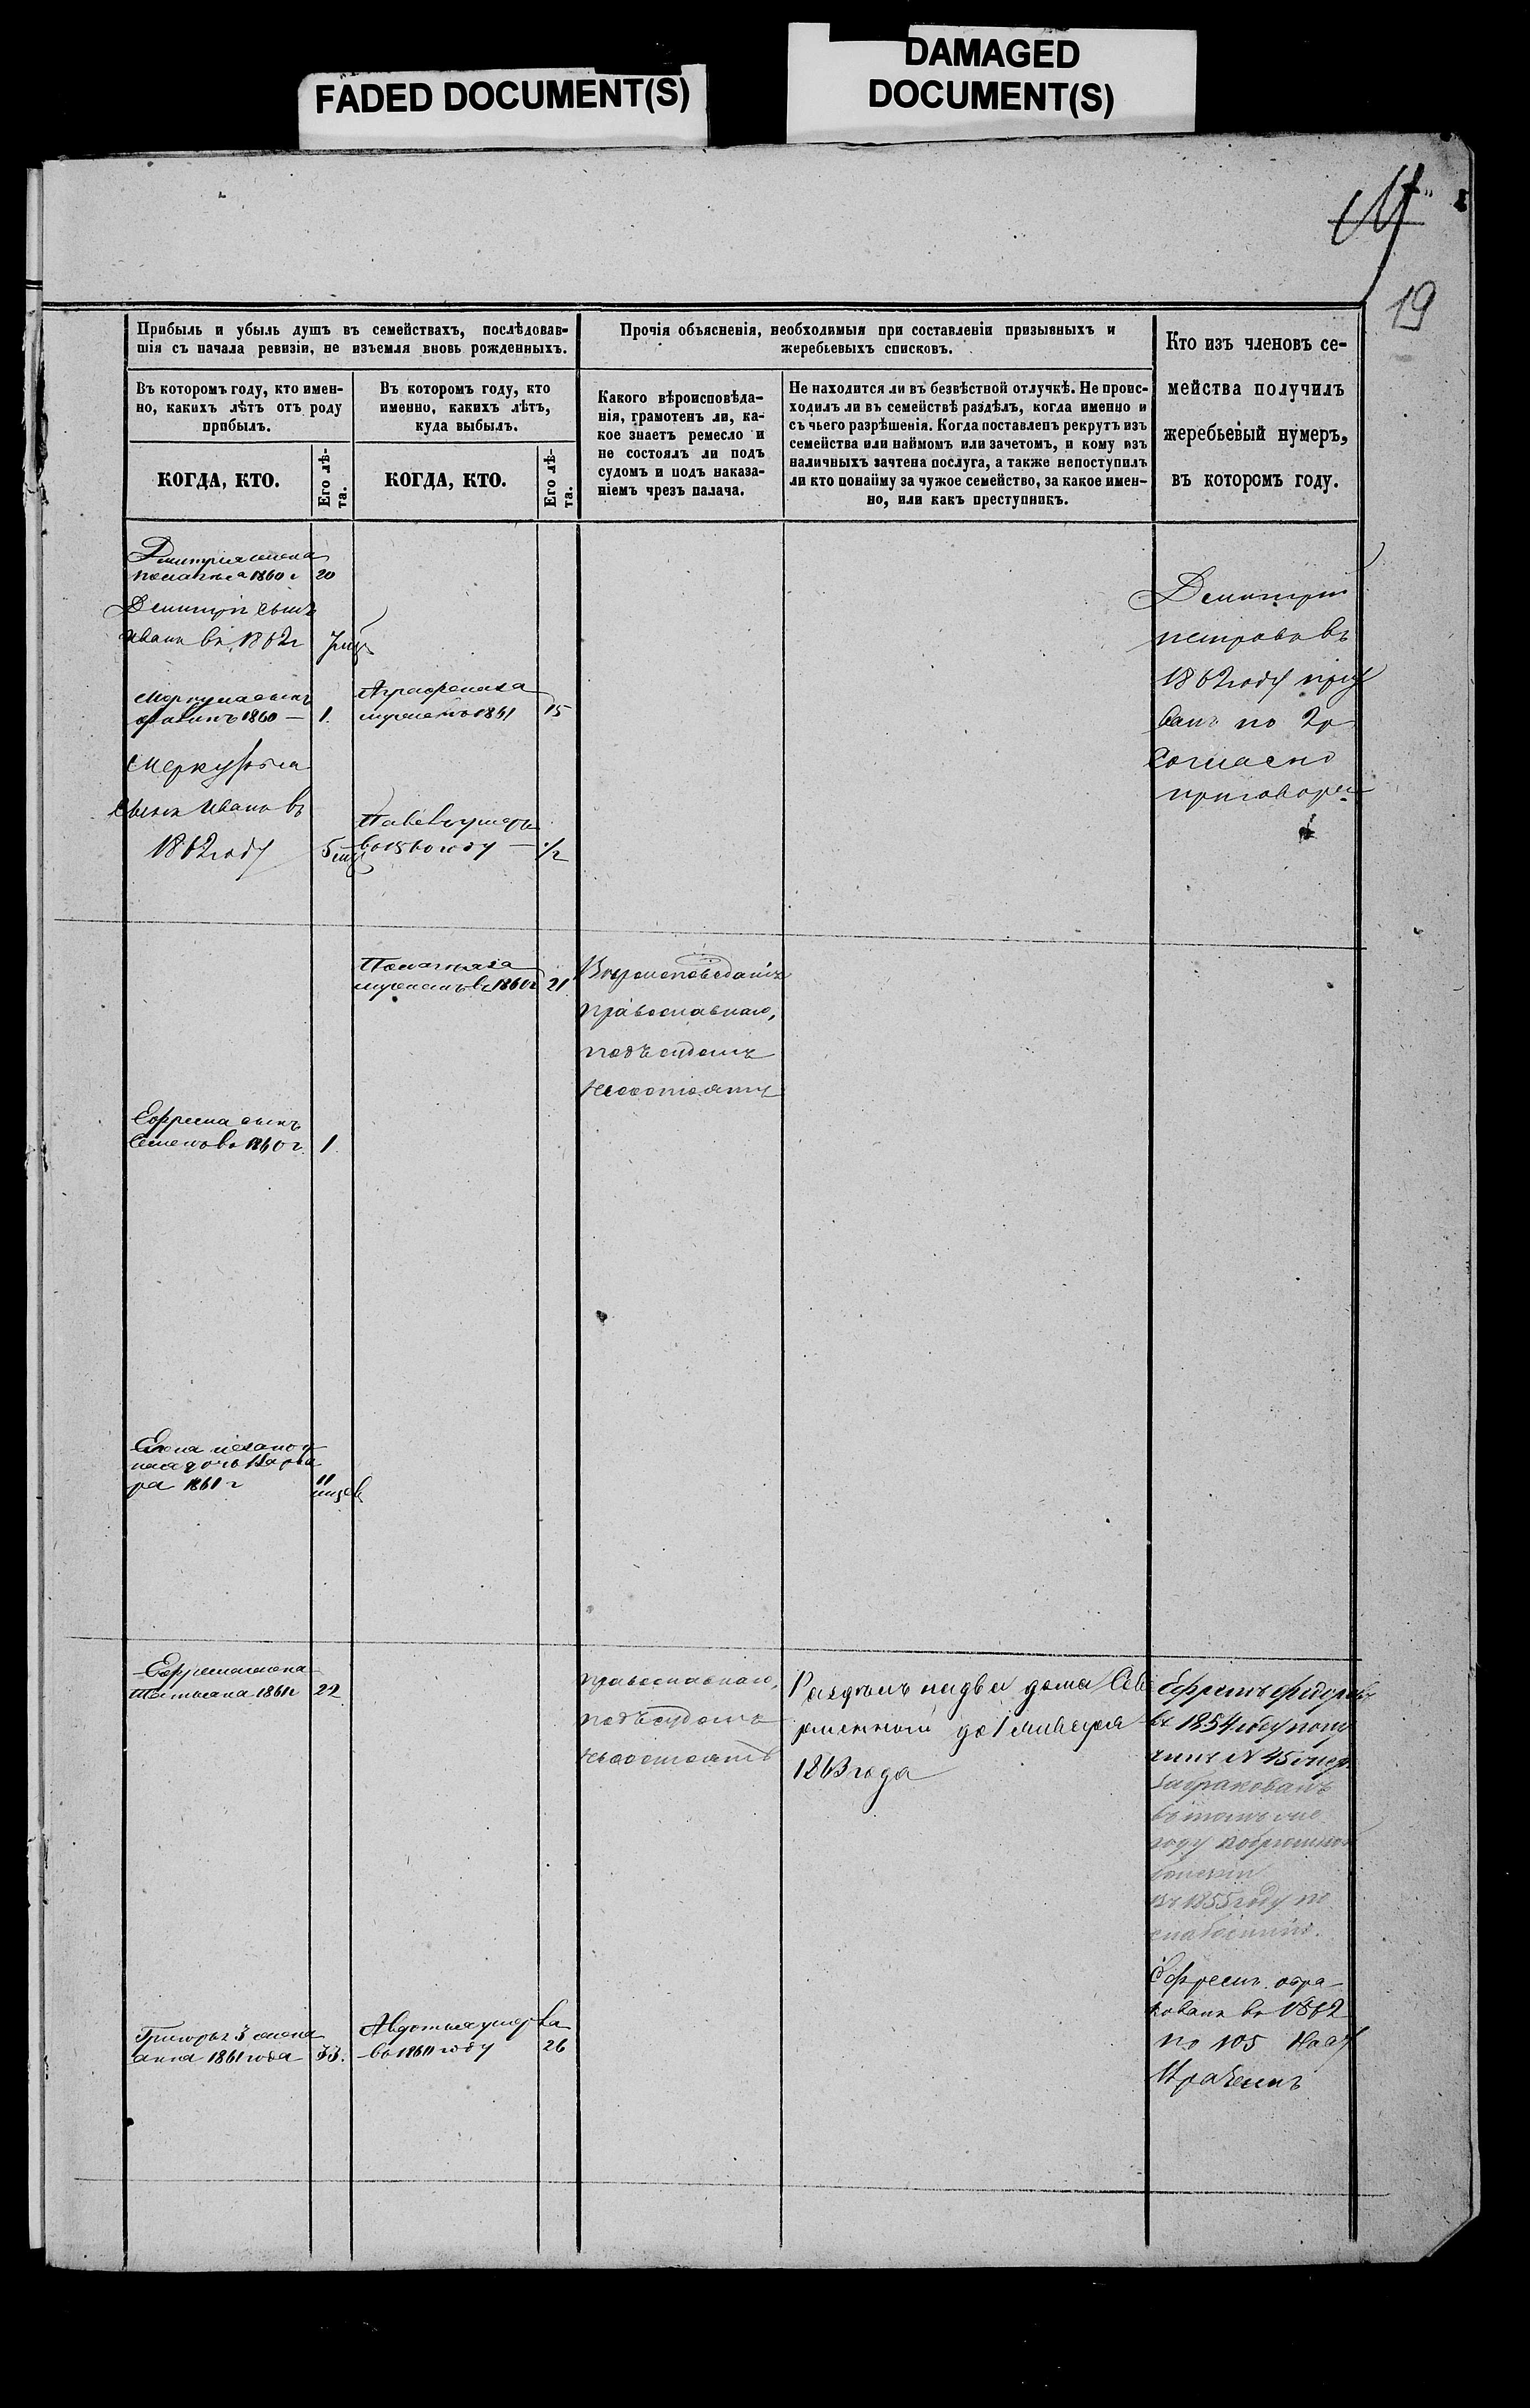 FADED DOCUMENT(S)
DAMAGED
DOCUMENT(S)
19
Прибыль и убыль душъ въ семействахъ, послѣдовав-
шія съ начала ревизіи, не изъемля вновь рожденныхъ.
Въ которомъ году, кто имен-
но, какихъ лѣтъ отъ роду
прибылъ.
КОГДА, КТО.
Его лѣ-
та.
Въ которомъ году, кто
именно, какихъ лѣтъ,
куда выбылъ.
КОГДА, КТО.
Его лѣ-
та.
Прочія объясненія, необходимыя при составленіи призывныхъ и
жеребьевыхъ списковъ.
Какого вѣроисповѣда-
нія, грамотенъ ли, ка-
кое знаетъ ремесло и
не состоялъ ли подъ
судомъ и подъ наказа-
ніемъ чрезъ палача.
Не находится ли въ безвѣстной отлучкѣ. Не проис-
ходилъ ли въ семействѣ раздѣлъ, когда именно и
съ чьего разрѣшенія. Когда поставленъ рекрутъ изъ
семейства или наймомъ или зачетомъ, и кому изъ
наличныхъ зачтена послуга, а также непоступилъ
ли кто понайму за чужое семейство, за какое имен-
но, или какъ преступникъ.
Кто изъ членовъ се-
мейства получилъ
жеребьевый нумеръ,
въ которомъ году.
Дмитрия жена
1860 г 20
Дмитрія сынъ
Иванъ въ 1862 г
сынъ
1860 — 1.
Меркурья
сынъ Иванъ въ
1862 году
1861 15
Павелъ умеръ
въ 1860 году — 1/2
Дмитрій
Петровъ въ
1862 году
по
Согласно
приговора
въ 1860 г 21
Вѣроисповѣданія
православнаго,
подъ судомъ
несостоятъ
Ефрема сынъ
Семенъ въ 1860 г. 1.
Елена незакон
ная дочь Варва
ра 1861 г
11
Ефрема жена
Татьяна 1861 г 22
православнаго,
подъ судомъ
несостоятъ
Раздѣлъ на два дома
до 1 Января
1863 года
Ефремъ Федоровъ
въ 1854 году полу
чилъ № 45
забракованъ
въ томъ же
году
въ 1855 году по
Ефремъ обра
кованъ въ 1862
по 105
Григорья 3 жена
анна 1861 года 33.
Авдотья умерла
въ 1860 году 26